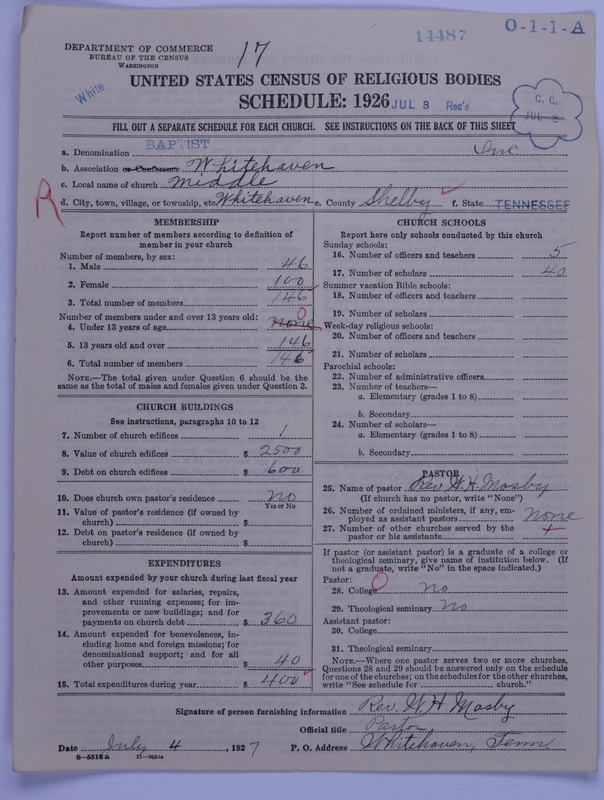 14487
O-1-1-A
DEPARTMENT OF COMMERCE
BUREAU OF THE CENSUS
WASHINGTON
17
White
UNITED STATES CENSUS OF RELIGIOUS BODIES
SCHEDULE: 1926
JUL 8 Rec'd
C. C.
JUL 8
FILL OUT A SEPARATE SCHEDULE FOR EACH CHURCH. SEE INSTRUCTIONS ON THE BACK OF THIS SHEET
a. Denomination BAPTIST Inc.
b. Association or Conference Whitehaven
c. Local name of church Middle
R
d. City, town, village, or township, etc. Whitehaven e. County Shelby f. State TENNESSEE
MEMBERSHIP
Report number of members according to definition of
member in your church
Number of members, by sex:
1. Male 46
2. Female 100
3. Total number of members 146
Number of members under and over 13 years old: 0
4. Under 13 years of age None
5. 13 years old and over 146
6. Total number of members 146
NOTE.—The total given under Question 6 should be the
same as the total of males and females given under Question 3.
CHURCH BUILDINGS
See instructions, paragraphs 10 to 12
7. Number of church edifices 1
8. Value of church edifices $ 2500
9. Debt on church edifices $ 600
10. Does church own pastor's residence no
Yes or No
11. Value of pastor's residence (if owned by
church) $
12. Debt on pastor's residence (if owned by
church) $
EXPENDITURES
Amount expended by your church during last fiscal year
13. Amount expended for salaries, repairs,
and other running expenses; for im-
provements or new buildings; and for
payments on church debt $ 360
14. Amount expended for benevolences, in-
cluding home and foreign missions; for
denominational support; and for all
other purposes $ 40
15. Total expenditures during year $ 400
CHURCH SCHOOLS
Report here only schools conducted by this church
Sunday schools:
16. Number of officers and teachers 5
17. Number of scholars 40
Summer vacation Bible schools:
18. Number of officers and teachers
19. Number of scholars
Week-day religious schools:
20. Number of officers and teachers
21. Number of scholars
Parochial schools:
22. Number of administrative officers
23. Number of teachers—
a. Elementary (grades 1 to 8)
b. Secondary
24. Number of scholars—
a. Elementary (grades 1 to 8)
b. Secondary
PASTOR
25. Name of pastor Rev. W. H. Mosby
(If church has no pastor, write "None")
26. Number of ordained ministers, if any, em-
ployed as assistant pastors None
27. Number of other churches served by the
pastor or his assistants
If pastor (or assistant pastor) is a graduate of a college or
theological seminary, give name of institution below. (If
not a graduate, write "No" in the space indicated.)
Pastor:
28. College No
29. Theological seminary No
Assistant pastor:
30. College
31. Theological seminary
NOTE.—Where one pastor serves two or more churches,
Questions 28 and 29 should be answered only on the schedule
for one of the churches; on the schedules for the other churches,
write "See schedule for church."
Signature of person furnishing information Rev. W. H. Mosby
Official title Pastor
Date July 4, 1927 P. O. Address Whitehaven, Tenn.
8-5318a